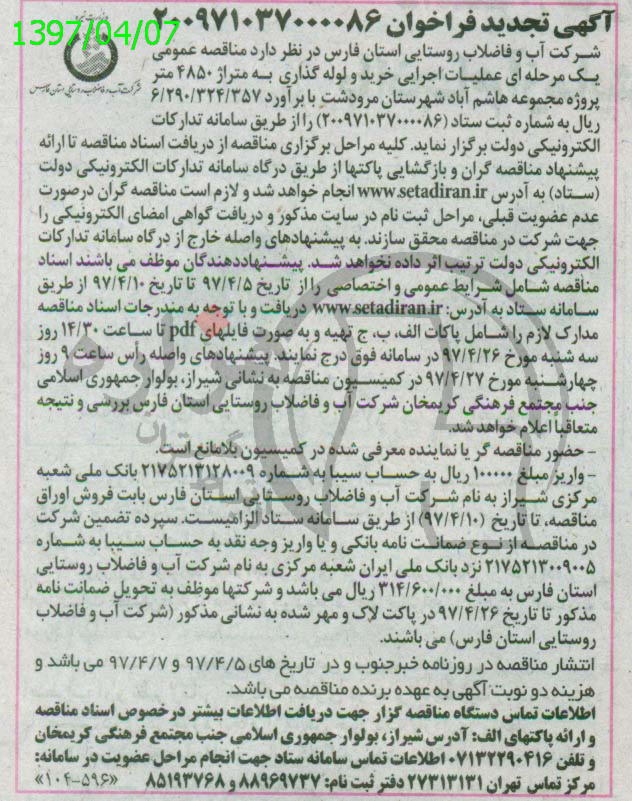 آگهی تجدید فراخوان ۲۰۰۹۷۱۰۳۷۰۰۰۰۸۶
1397/04/07
شرکت آب و فاضلاب روستایی استان فارس
شرکت آب و فاضلاب روستایی استان فارس در نظر دارد مناقصه عمومی
یک مرحله ای عملیات اجرایی خرید و لوله گذاری به متراژ ۴۸۵۰ متر
پروژه مجموعه هاشم آباد شهرستان مرودشت با برآورد ۶/۲۹۰/۳۲۴/۳۵۷
ریال به شماره ثبت ستاد (۲۰۰۹۷۱۰۳۷۰۰۰۰۸۶) را از طریق سامانه تدارکات
الکترونیکی دولت برگزار نماید. کلیه مراحل برگزاری مناقصه از دریافت اسناد مناقصه تا ارائه
پیشنهاد مناقصه گران و بازگشایی پاکتها از طریق درگاه سامانه تدارکات الکترونیکی دولت
(ستاد) به آدرس www.setadiran.ir انجام خواهد شد و لازم است مناقصه گران درصورت
عدم عضویت قبلی، مراحل ثبت نام در سایت مذکور و دریافت گواهی امضای الکترونیکی را
جهت شرکت در مناقصه محقق سازند. به پیشنهادهای واصله خارج از درگاه سامانه تدارکات
الکترونیکی دولت ترتیب اثر داده نخواهد شد. پیشنهاددهندگان موظف می باشند اسناد
مناقصه شامل شرایط عمومی و اختصاصی را از تاریخ ۹۷/۴/۵ تا تاریخ ۹۷/۴/۱۰ از طریق
سامانه ستاد به آدرس: www.setadiran.ir دریافت و با توجه به مندرجات اسناد مناقصه
مدارک لازم را شامل پاکات الف، ب، ج تهیه و به صورت فایلهای pdf تا ساعت ۱۴/۳۰ روز
سه شنبه مورخ ۹۷/۴/۲۶ در سامانه فوق درج نمایند. پیشنهادهای واصله رأس ساعت ۹ روز
چهارشنبه مورخ ۹۷/۴/۲۷ در کمیسیون مناقصه به نشانی شیراز، بولوار جمهوری اسلامی
جنب مجتمع فرهنگی کریمخان شرکت آب و فاضلاب روستایی استان فارس بررسی و نتیجه
متعاقباً اعلام خواهد شد.
- حضور مناقصه گر یا نماینده معرفی شده در کمیسیون بلامانع است.
- واریز مبلغ ۱۰۰۰۰۰ ریال به حساب سیبا به شماره ۲۱۷۵۲۱۳۱۲۸۰۰۹ بانک ملی شعبه
مرکزی شیراز به نام شرکت آب و فاضلاب روستایی استان فارس بابت فروش اوراق
مناقصه، تا تاریخ (۹۷/۴/۱۰) از طریق سامانه ستاد الزامیست. سپرده تضمین شرکت
در مناقصه از نوع ضمانت نامه بانکی و یا واریز وجه نقد به حساب سیبا به شماره
۲۱۷۵۲۱۳۰۰۹۰۰۵ نزد بانک ملی ایران شعبه مرکزی به نام شرکت آب و فاضلاب روستایی
استان فارس به مبلغ ۳۱۴/۶۰۰/۰۰۰ ریال می باشد و شرکتها موظف به تحویل ضمانت نامه
مذکور تا تاریخ ۹۷/۴/۲۶ در پاکت لاک و مهر شده به نشانی مذکور (شرکت آب و فاضلاب
روستایی استان فارس) می باشند.
انتشار مناقصه در روزنامه خبرجنوب و در تاریخ های ۹۷/۴/۵ و ۹۷/۴/۷ می باشد و
هزینه دو نوبت آگهی به عهده برنده مناقصه می باشد.
اطلاعات تماس دستگاه مناقصه گزار جهت دریافت اطلاعات بیشتر درخصوص اسناد مناقصه
و ارائه پاکتهای الف: آدرس شیراز، بولوار جمهوری اسلامی جنب مجتمع فرهنگی کریمخان
و تلفن ۰۷۱۳۲۲۹۰۴۱۶ اطلاعات تماس سامانه ستاد جهت انجام مراحل عضویت در سامانه:
مرکز تماس تهران ۲۷۳۱۳۱۳۱ دفتر ثبت نام: ۸۸۹۶۹۷۳۷ و ۸۵۱۹۳۷۶۸ «۱۰۴-۵۹۶»